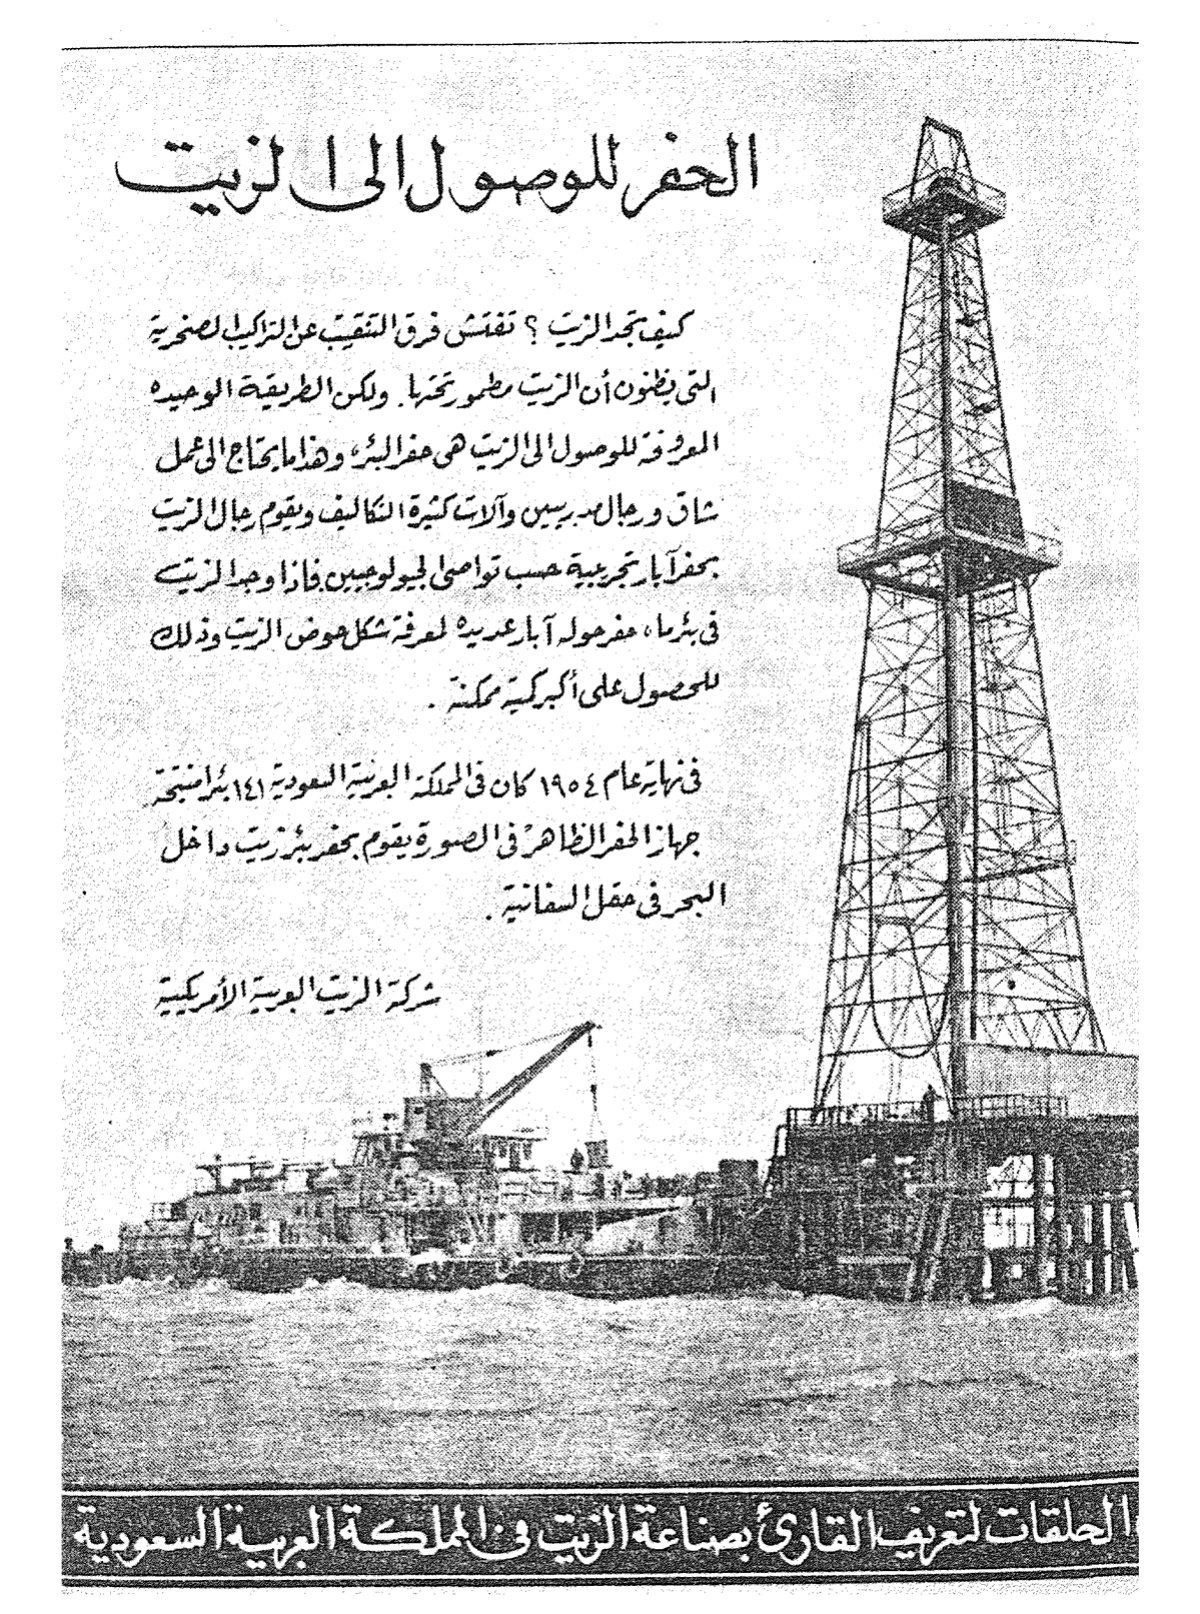 الحفر للوصول الى الزيت
كيف تجد الزيت ؟ تفتش فرق التنقيب عن التراكيب الصخرية
التى يظنون أن الزيت مطمور تحتها. ولكن الطريقة الوحيده
المعروفة للوصول الى الزيت هى حفر البئر، وهذا ما يحتاج الى عمل
شاق ورجال مدربين وآلات كثيرة التكاليف ويقوم رجال الزيت
بحفر آبار تجريبية حسب تواصى الجيولوجيين فاذا وجد الزيت
فى بئر ما، حفر حوله آبار عديده لمعرفة شكل حوض الزيت وذلك
للحصول على أكبر كمية ممكنة .
فى نهاية عام ١٩٥٤ كان فى المملكة العربية السعودية ١٤١ بئرا منتجة
جهاز الحفر الظاهر فى الصورة يقوم بحفر بئر زيت داخل
البحر فى حقل السفانية .
شركة الزيت العربية الأمريكية
الحلقات لتعريف القارئ بصناعة الزيت فى المملكة العربية السعودية